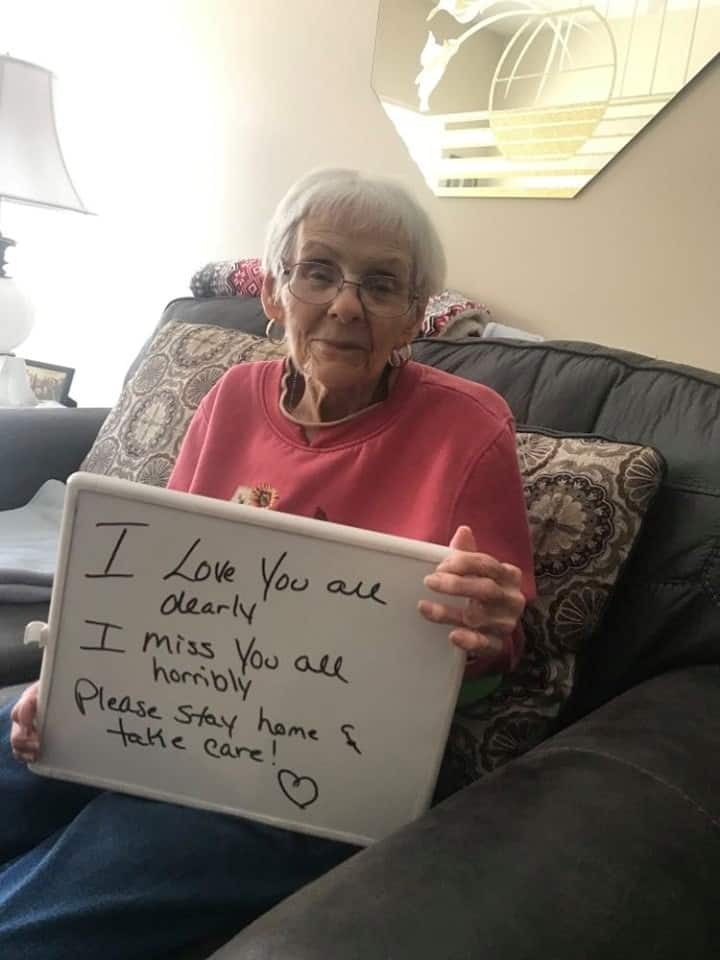 I Love You all
dearly
I miss You all
horribly
Please stay home &
take care!